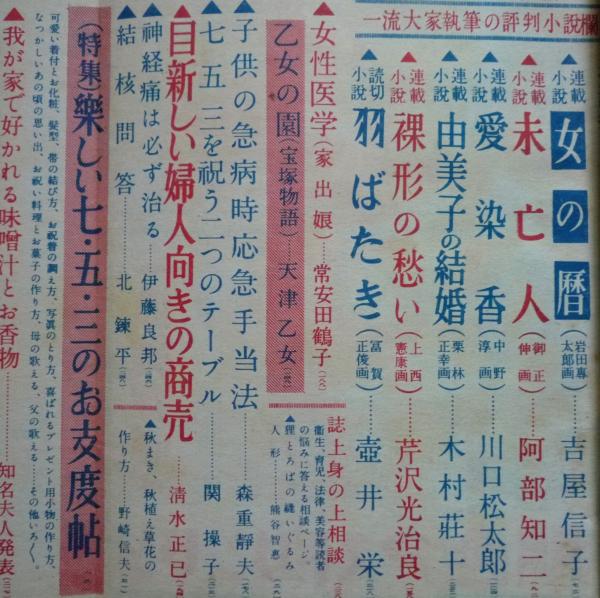 一流大家執筆の評判小説欄
▲連載小説 女の暦 (岩田専太郎画) 吉屋信子
▲連載小説 未亡人 (御正伸画) 阿部知二
▲連載小説 愛染香 (中野淳画) 川口松太郎
▲連載小説 由美子の結婚 (栗林正幸画) 木村荘十
▲連載小説 裸形の愁い (上西憲康画) 芹沢光治良
▲読切小説 羽ばたき (冨賀正俊画) 壺井栄
▲女性医学(家出娘) 常安田鶴子
誌上身の上相談
衛生、育児、法律、美容等読者の悩みに答える相談ページ。
乙女の園(宝塚物語) 天津乙女
▲狸とろばの縫いぐるみ人形 熊谷智恵
▲子供の急病時応急手当法 森重静夫
▲七五三を祝う二つのテーブル 関操子
▲目新しい婦人向きの商売 清水正巳
▲神経痛は必ず治る 伊藤良邦
▲秋まき、秋植え草花の作り方 野崎信夫
▲結核問答 北錬平
(特集)楽しい七・五・三のお支度帖
可愛い着付とお化粧、髪型、帯の結び方、お祝着の調え方、写真のとり方、喜ばれるプレゼント用小物の作り方、
なつかしいあの頃の思い出、お祝い料理とお菓子の作り方、母の歌える、父の歌える……その他いろ〱。
▲我が家で好かれる味噌汁とお香物 知名夫人発表